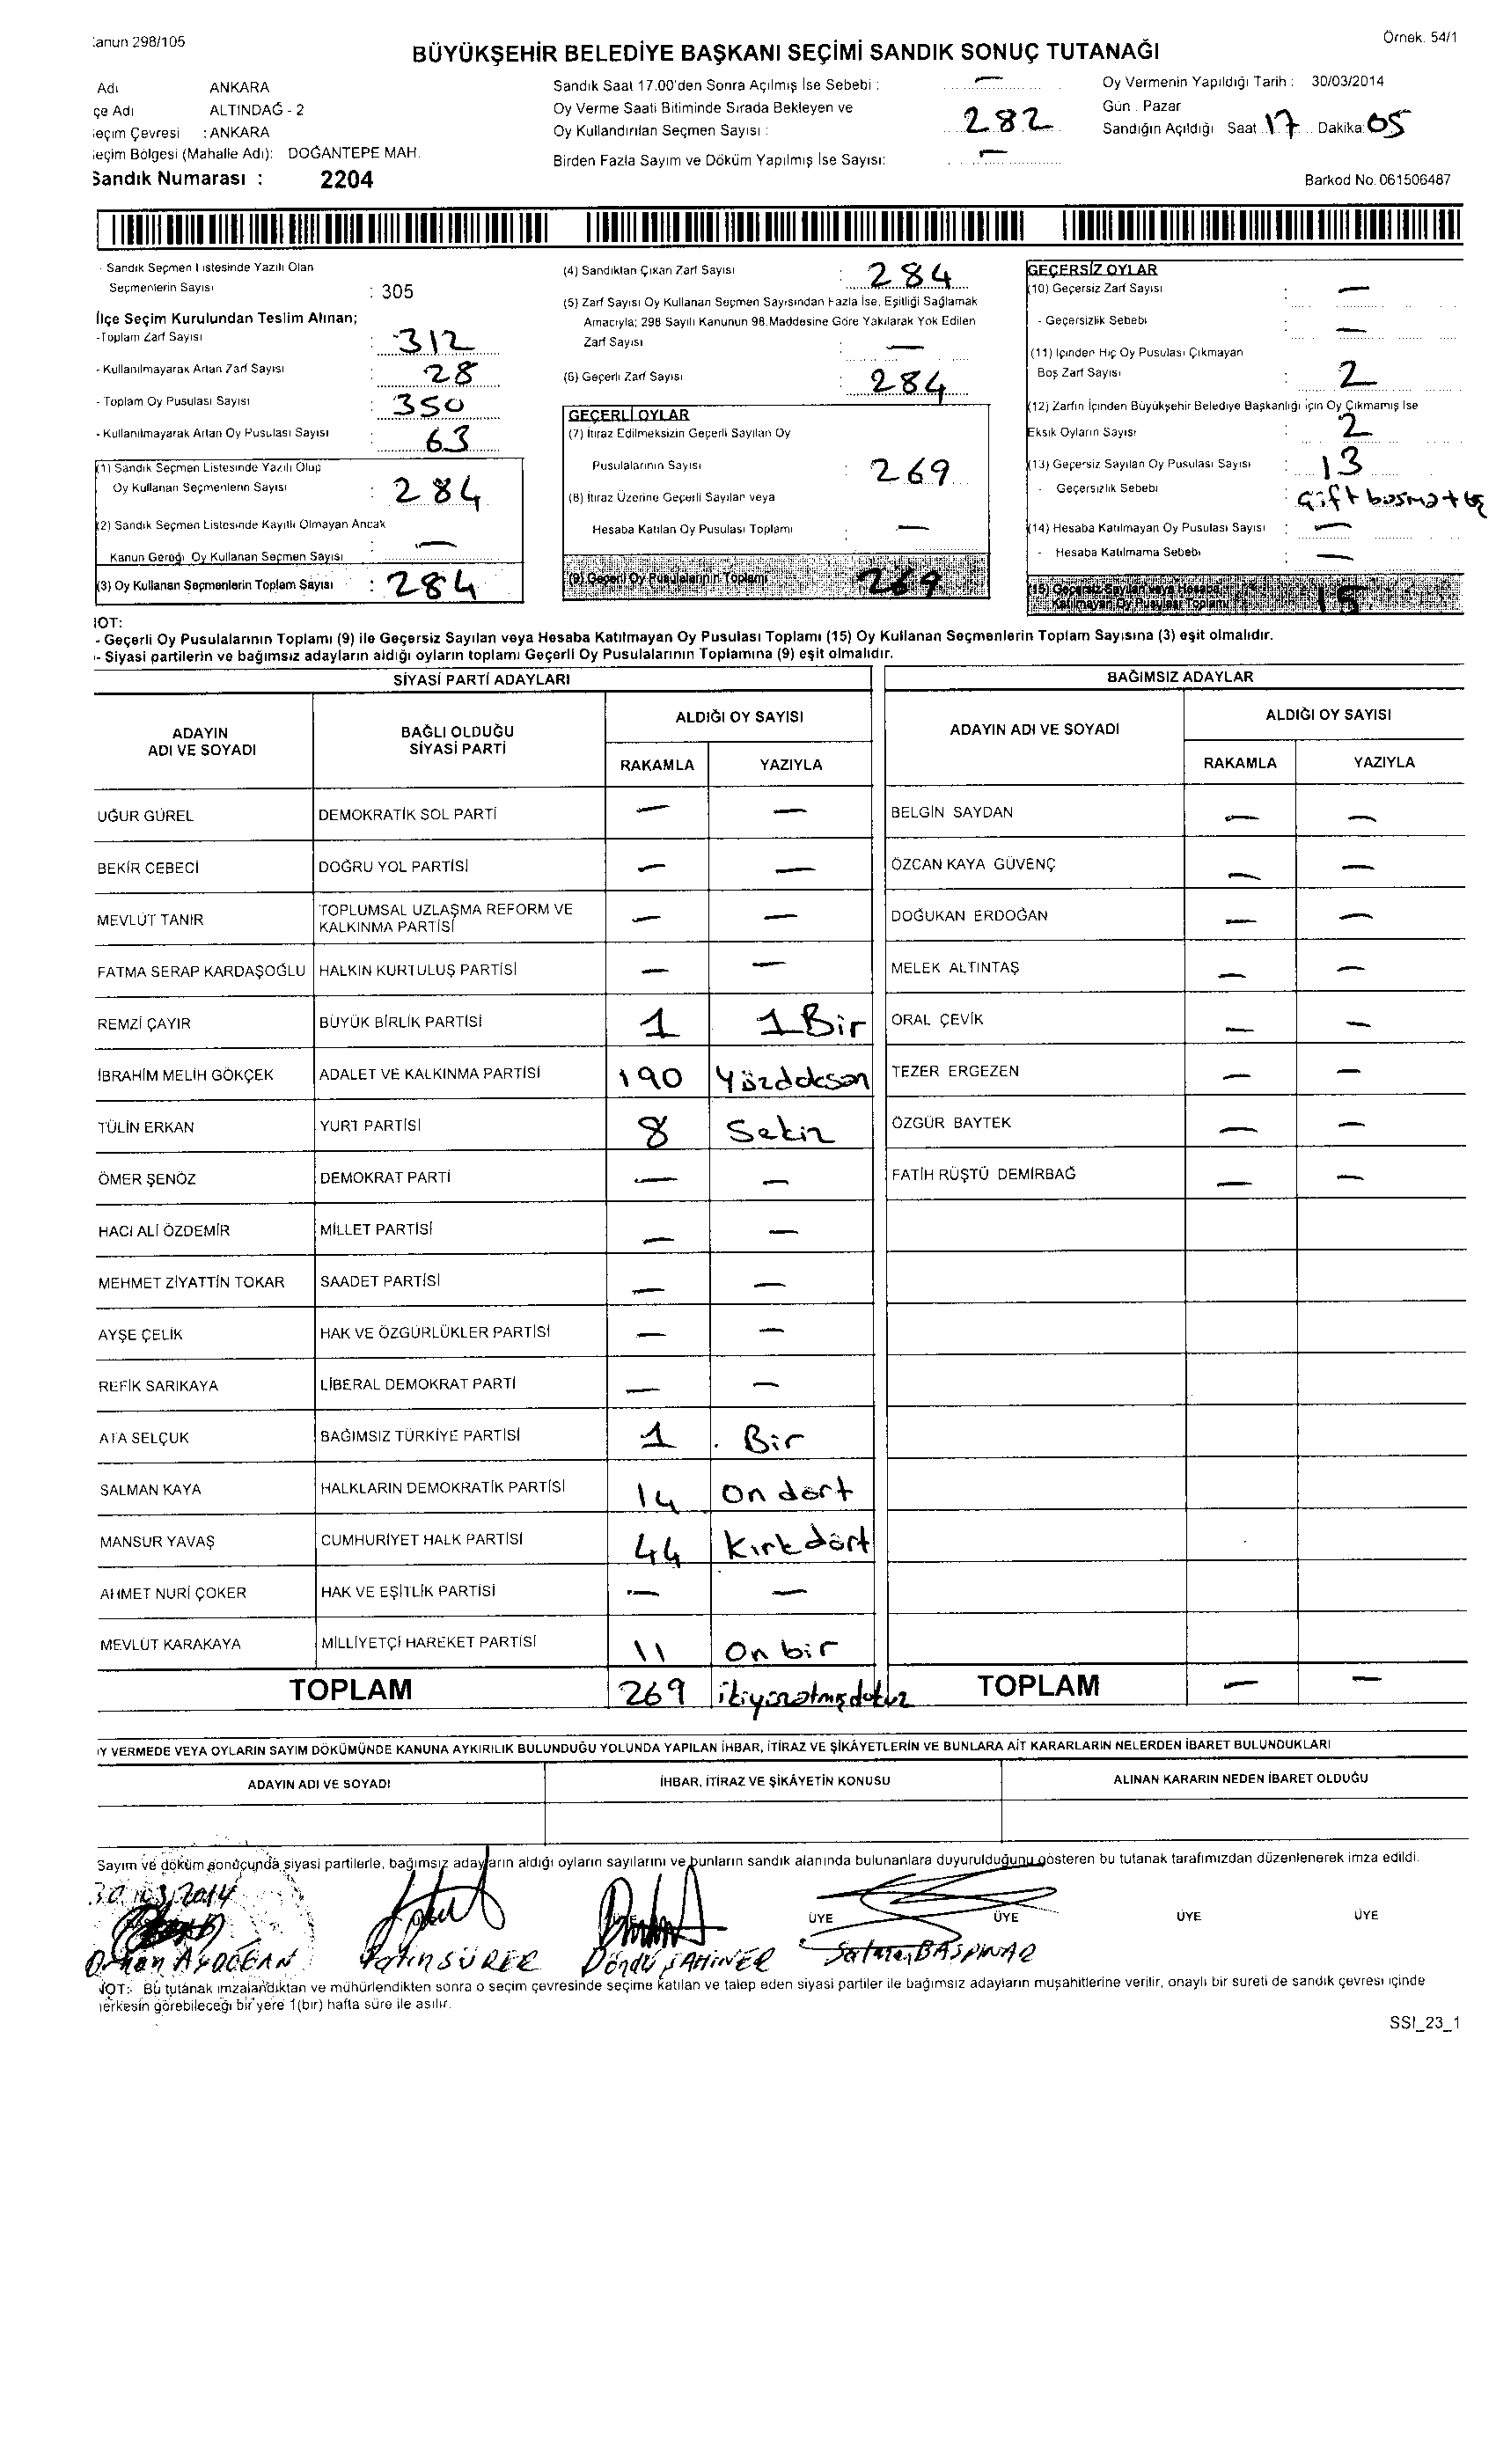 Kanun 298/105
Örnek. 54/1
BÜYÜKŞEHİR BELEDİYE BAŞKANI SEÇİMİ SANDIK SONUÇ TUTANAĞI
Adı ANKARA
çe Adı ALTINDAĞ - 2
eçim Çevresi : ANKARA
eçim Bölgesi (Mahalle Adı): DOĞANTEPE MAH.
Sandık Numarası : 2204
Sandık Saat 17.00'den Sonra Açılmış İse Sebebi : —
Oy Verme Saati Bitiminde Sırada Bekleyen ve
Oy Kullandırılan Seçmen Sayısı : 282
Birden Fazla Sayım ve Döküm Yapılmış İse Sayısı: —
Oy Vermenin Yapıldığı Tarih : 30/03/2014
Gün . Pazar
Sandığın Açıldığı Saat 17 Dakika: 05
Barkod No. 061506487
- Sandık Seçmen Listesinde Yazılı Olan
Seçmenlerin Sayısı : 305
İlçe Seçim Kurulundan Teslim Alınan;
-Toplam Zarf Sayısı : 312
- Kullanılmayarak Artan Zarf Sayısı : 28
- Toplam Oy Pusulası Sayısı : 350
- Kullanılmayarak Artan Oy Pusulası Sayısı : 63
(1) Sandık Seçmen Listesinde Yazılı Olup
Oy Kullanan Seçmenlerin Sayısı : 284
(2) Sandık Seçmen Listesinde Kayıtlı Olmayan Ancak
Kanun Gereği Oy Kullanan Seçmen Sayısı : —
(3) Oy Kullanan Seçmenlerin Toplam Sayısı : 284
(4) Sandıktan Çıkan Zarf Sayısı : 284
(5) Zarf Sayısı Oy Kullanan Seçmen Sayısından Fazla İse, Eşitliği Sağlamak
Amacıyla; 298 Sayılı Kanunun 98.Maddesine Göre Yakılarak Yok Edilen
Zarf Sayısı : —
(6) Geçerli Zarf Sayısı : 284
GEÇERLİ OYLAR
(7) İtiraz Edilmeksizin Geçerli Sayılan Oy
Pusulalarının Sayısı : 269
(8) İtiraz Üzerine Geçerli Sayılan veya
Hesaba Katılan Oy Pusulası Toplamı : —
(9) Geçerli Oy Pusulalarının Toplamı 269
GEÇERSİZ OYLAR
(10) Geçersiz Zarf Sayısı : —
- Geçersizlik Sebebi : —
(11) İçinden Hiç Oy Pusulası Çıkmayan
Boş Zarf Sayısı : 2
(12) Zarfın İçinden Büyükşehir Belediye Başkanlığı için Oy Çıkmamış İse
Eksik Oyların Sayısı : 2
(13) Geçersiz Sayılan Oy Pusulası Sayısı : 13
- Geçersizlik Sebebi : Çift basmatış
(14) Hesaba Katılmayan Oy Pusulası Sayısı : —
- Hesaba Katılmama Sebebi : —
(15) Geçersiz Sayılan veya Hesaba
Katılmayan Oy Pusulası Toplamı 15
NOT:
- Geçerli Oy Pusulalarının Toplamı (9) ile Geçersiz Sayılan veya Hesaba Katılmayan Oy Pusulası Toplamı (15) Oy Kullanan Seçmenlerin Toplam Sayısına (3) eşit olmalıdır.
- Siyasi partilerin ve bağımsız adayların aldığı oyların toplamı Geçerli Oy Pusulalarının Toplamına (9) eşit olmalıdır.
SİYASİ PARTİ ADAYLARI
BAĞIMSIZ ADAYLAR
ADAYIN ADI VE SOYADI
BAĞLI OLDUĞU SİYASİ PARTİ
ALDIĞI OY SAYISI
RAKAMLA YAZIYLA
ADAYIN ADI VE SOYADI
ALDIĞI OY SAYISI
RAKAMLA YAZIYLA
UĞUR GÜREL DEMOKRATİK SOL PARTİ — — BELGİN SAYDAN — —
BEKİR CEBECİ DOĞRU YOL PARTİSİ — — ÖZCAN KAYA GÜVENÇ — —
MEVLÜT TANIR TOPLUMSAL UZLAŞMA REFORM VE KALKINMA PARTİSİ — — DOĞUKAN ERDOĞAN — —
FATMA SERAP KARDAŞOĞLU HALKIN KURTULUŞ PARTİSİ — — MELEK ALTINTAŞ — —
REMZİ ÇAYIR BÜYÜK BİRLİK PARTİSİ 1 1 Bir ORAL ÇEVİK — —
İBRAHİM MELİH GÖKÇEK ADALET VE KALKINMA PARTİSİ 190 Yüzdoksan TEZER ERGEZEN — —
TÜLİN ERKAN YURT PARTİSİ 8 Sekiz ÖZGÜR BAYTEK — —
ÖMER ŞENÖZ DEMOKRAT PARTİ — — FATİH RÜŞTÜ DEMİRBAĞ — —
HACI ALİ ÖZDEMİR MİLLET PARTİSİ — —
MEHMET ZİYATTİN TOKAR SAADET PARTİSİ — —
AYŞE ÇELİK HAK VE ÖZGÜRLÜKLER PARTİSİ — —
REFİK SARIKAYA LİBERAL DEMOKRAT PARTİ — —
ATA SELÇUK BAĞIMSIZ TÜRKİYE PARTİSİ 1 Bir
SALMAN KAYA HALKLARIN DEMOKRATİK PARTİSİ 14 On dört
MANSUR YAVAŞ CUMHURİYET HALK PARTİSİ 44 Kırkdört
AHMET NURİ ÇOKER HAK VE EŞİTLİK PARTİSİ — —
MEVLÜT KARAKAYA MİLLİYETÇİ HAREKET PARTİSİ 11 On bir
TOPLAM 269 ikiyüzatmışdokuz TOPLAM — —
OY VERMEDE VEYA OYLARIN SAYIM DÖKÜMÜNDE KANUNA AYKIRILIK BULUNDUĞU YOLUNDA YAPILAN İHBAR, İTİRAZ VE ŞİKÂYETLERİN VE BUNLARA AİT KARARLARIN NELERDEN İBARET BULUNDUKLARI
ADAYIN ADI VE SOYADI İHBAR, İTİRAZ VE ŞİKÂYETİN KONUSU ALINAN KARARIN NEDEN İBARET OLDUĞU
Sayım ve döküm sonucunda siyasi partilerle, bağımsız adayların aldığı oyların sayılarını ve bunların sandık alanında bulunanlara duyurulduğunu gösteren bu tutanak tarafımızdan düzenlenerek imza edildi.
30/03/2014
ÜYE ÜYE ÜYE ÜYE
Orhan AYDOĞAN SÜRER Döndü ŞAHİNER BAŞPINAR
NOT: Bu tutanak imzalandıktan ve mühürlendikten sonra o seçim çevresinde seçime katılan ve talep eden siyasi partiler ile bağımsız adayların müşahitlerine verilir, onaylı bir sureti de sandık çevresi içinde
herkesin görebileceği bir yere 1(bir) hafta süre ile asılır.
SSI_23_1